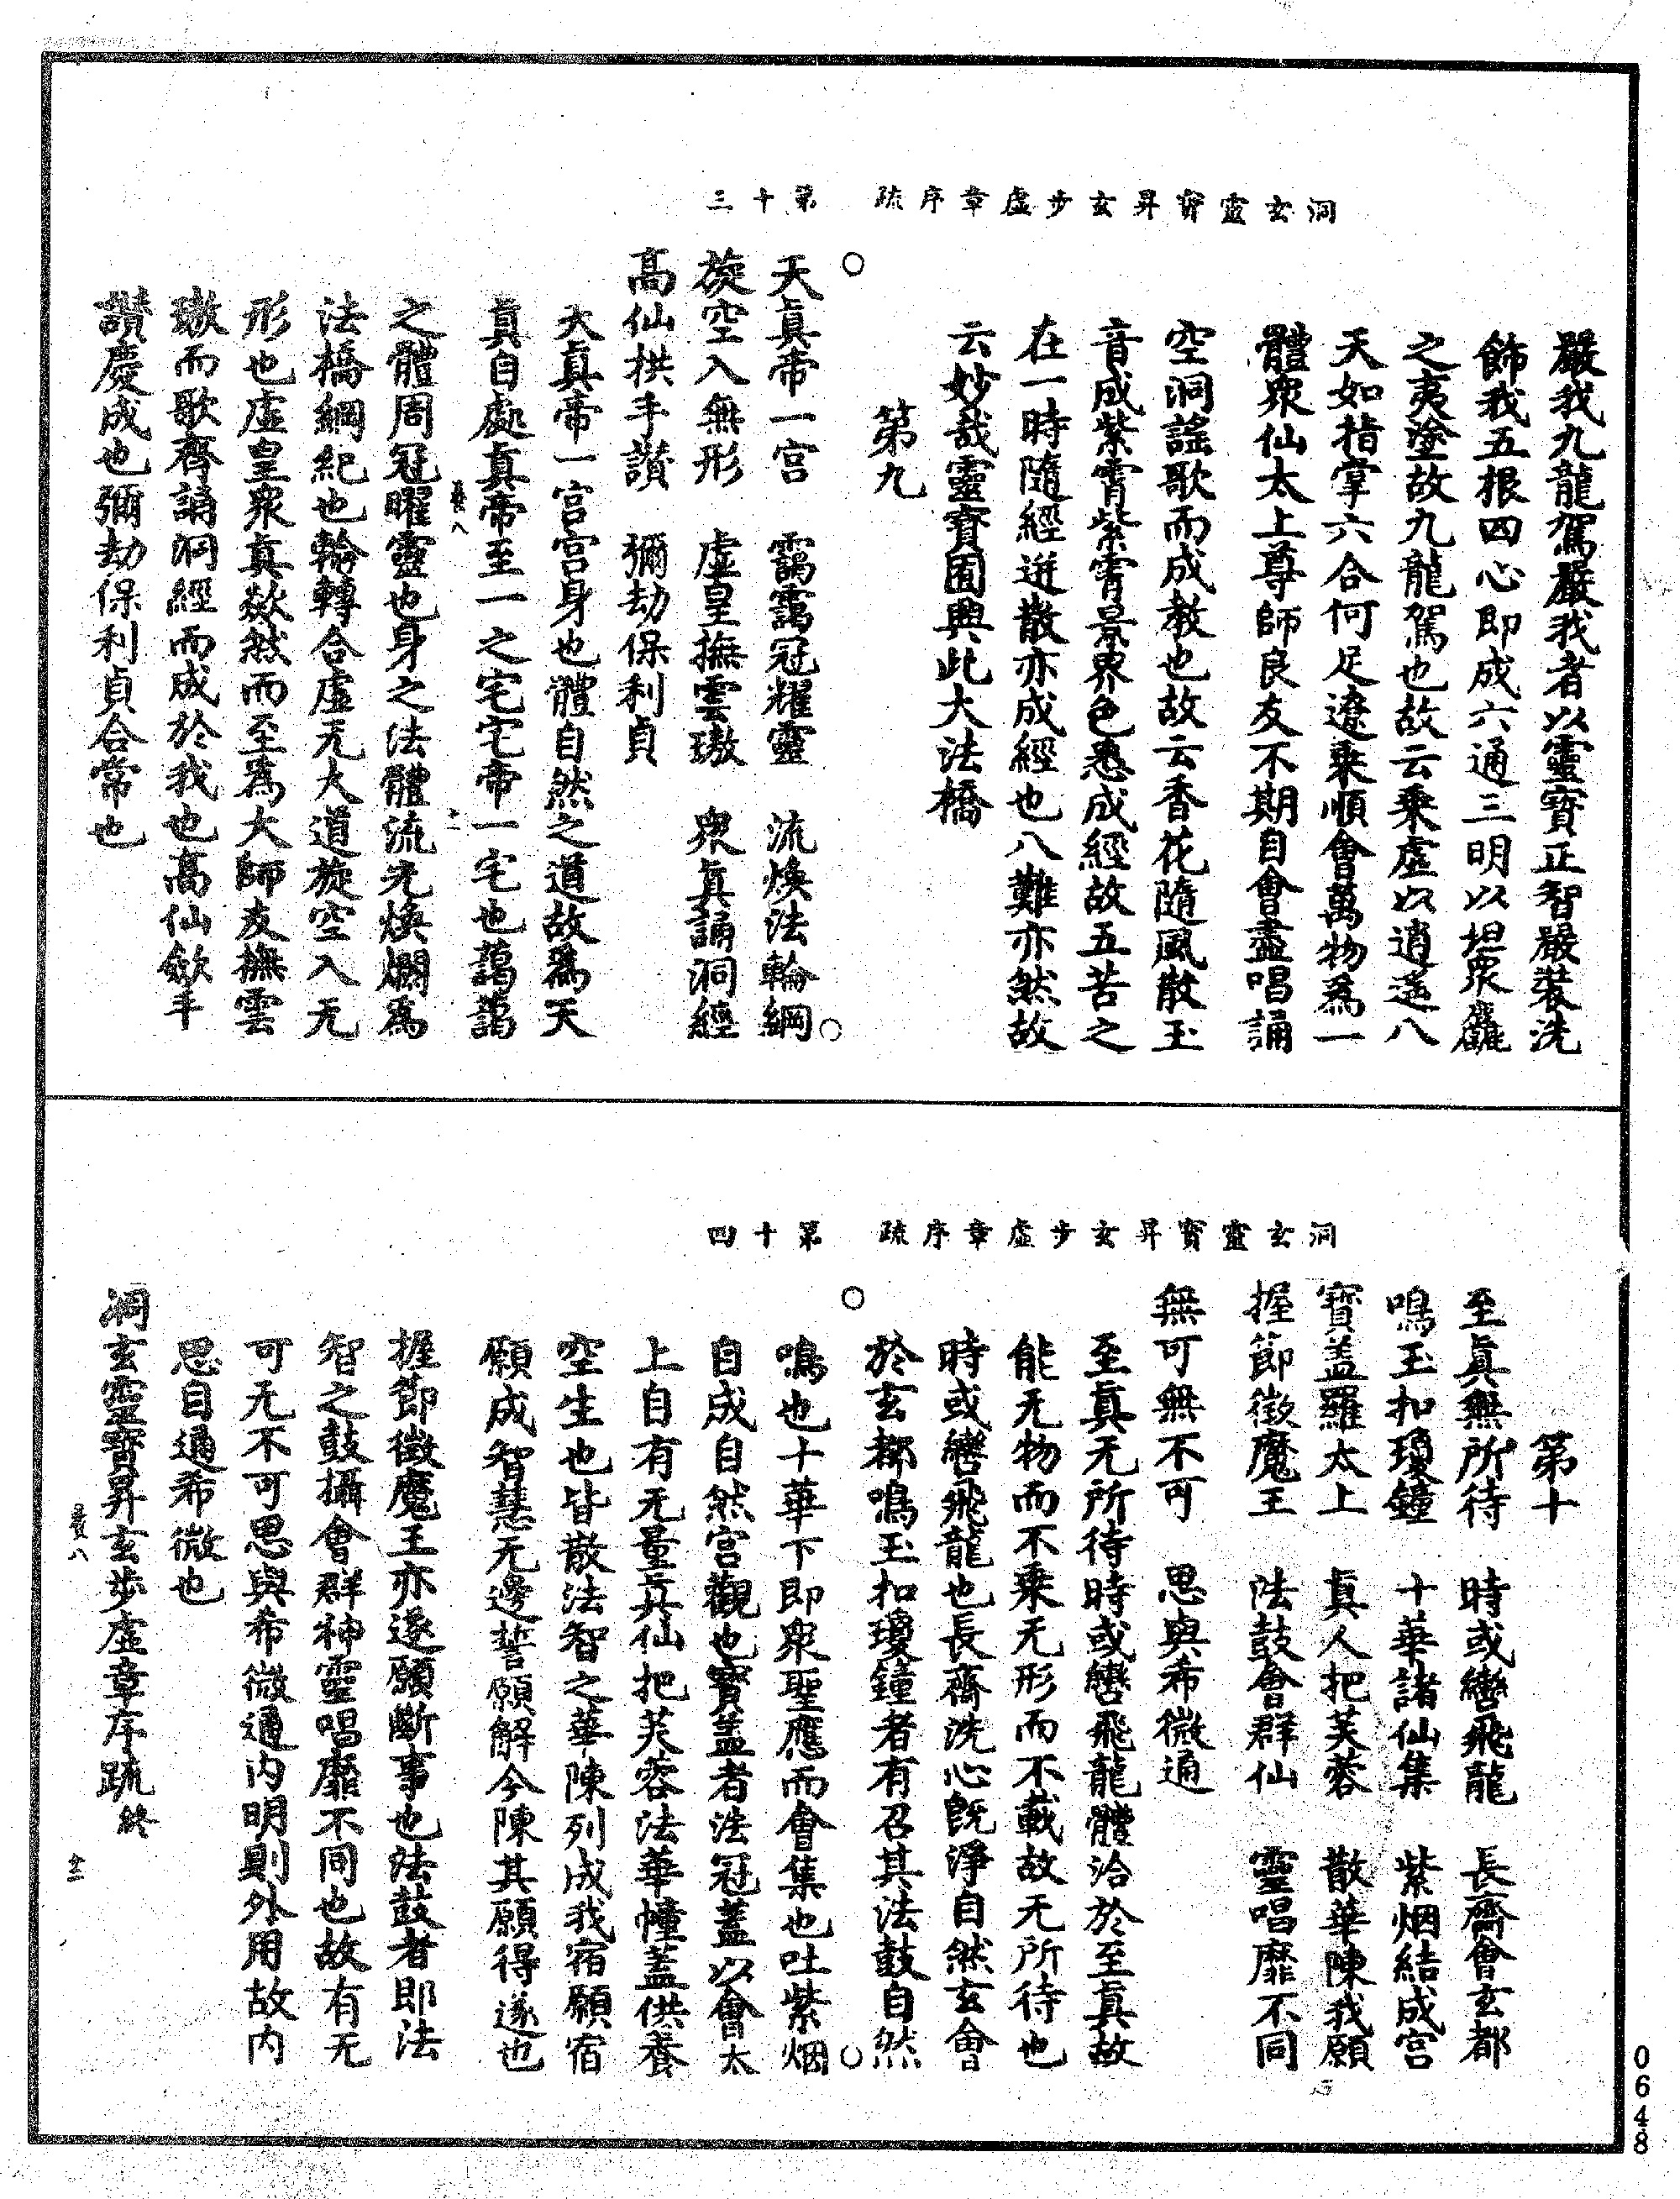 洞玄靈寶昇玄步虛章序疏　第十三
嚴我九龍駕嚴我者以靈寶正智嚴裝洗
飾我五根四心即成六通三明以坦衆麤
之夷塗故九龍駕也故云乘虛以逍遥八
天如指掌六合何足遼乘順會萬物爲一
體衆仙太上尊師良友不期自會盡唱誦
空洞謠歌而成教也故云香花隨風散玉
音成紫霄紫霄景界色悉成經故五苦之
在一時隨經迸散亦成經也八難亦然故
云妙哉靈寶囿興此大法橋
第九
天眞帝一宮　靄靄冠耀靈　流煥法輪綱
旋空入無形　虛皇撫雲璈　衆眞誦洞經
高仙拱手讃　彌劫保利貞
大眞帝一宮宮身也體自然之道故爲天
眞自處眞帝至一之宅宅帝一宅也藹藹
之體周冠曜靈也身之法體流光煥爛爲
法橋綱紀也輪轉合虛无大道旋空入无
形也虛皇衆眞欻然而至爲大師友撫雲
璈而歌齊誦洞經而成於我也高仙斂手
讃慶成也彌劫保利貞合常也
洞玄靈寶昇玄步虛章序疏　第十四
第十
至眞無所待　時或轡飛龍　長齋會玄都
鳴玉扣瓊鐘　十華諸仙集　紫烟結成宮
寶盖羅太上　眞人把芙蓉　散華陳我願
握節徵魔王　法鼓會群仙　靈唱靡不同
無可無不可　思與希微通
至眞无所待時或轡飛龍體洽於至眞故
能无物而不乘无形而不載故无所待也
時或轡飛龍也長齋洗心旣淨自然玄會
於玄都鳴玉扣瓊鐘者有召其法鼓自然
鳴也十華下即衆聖應而會集也吐紫烟
自成自然宮觀也寶盖者法冠蓋以會太
上自有无量眞仙把芙蓉法華幢蓋供養
空生也皆散法智之華陳列成我宿願宿
願成智慧无邊誓願解今陳其願得遂也
握節徵魔王亦遂願斷事也法鼓者即法
智之鼓攝會群神靈唱靡不同也故有无
可无不可思與希微通内明則外用故内
思自通希微也
洞玄靈寶昇玄步虛章序疏終
0648